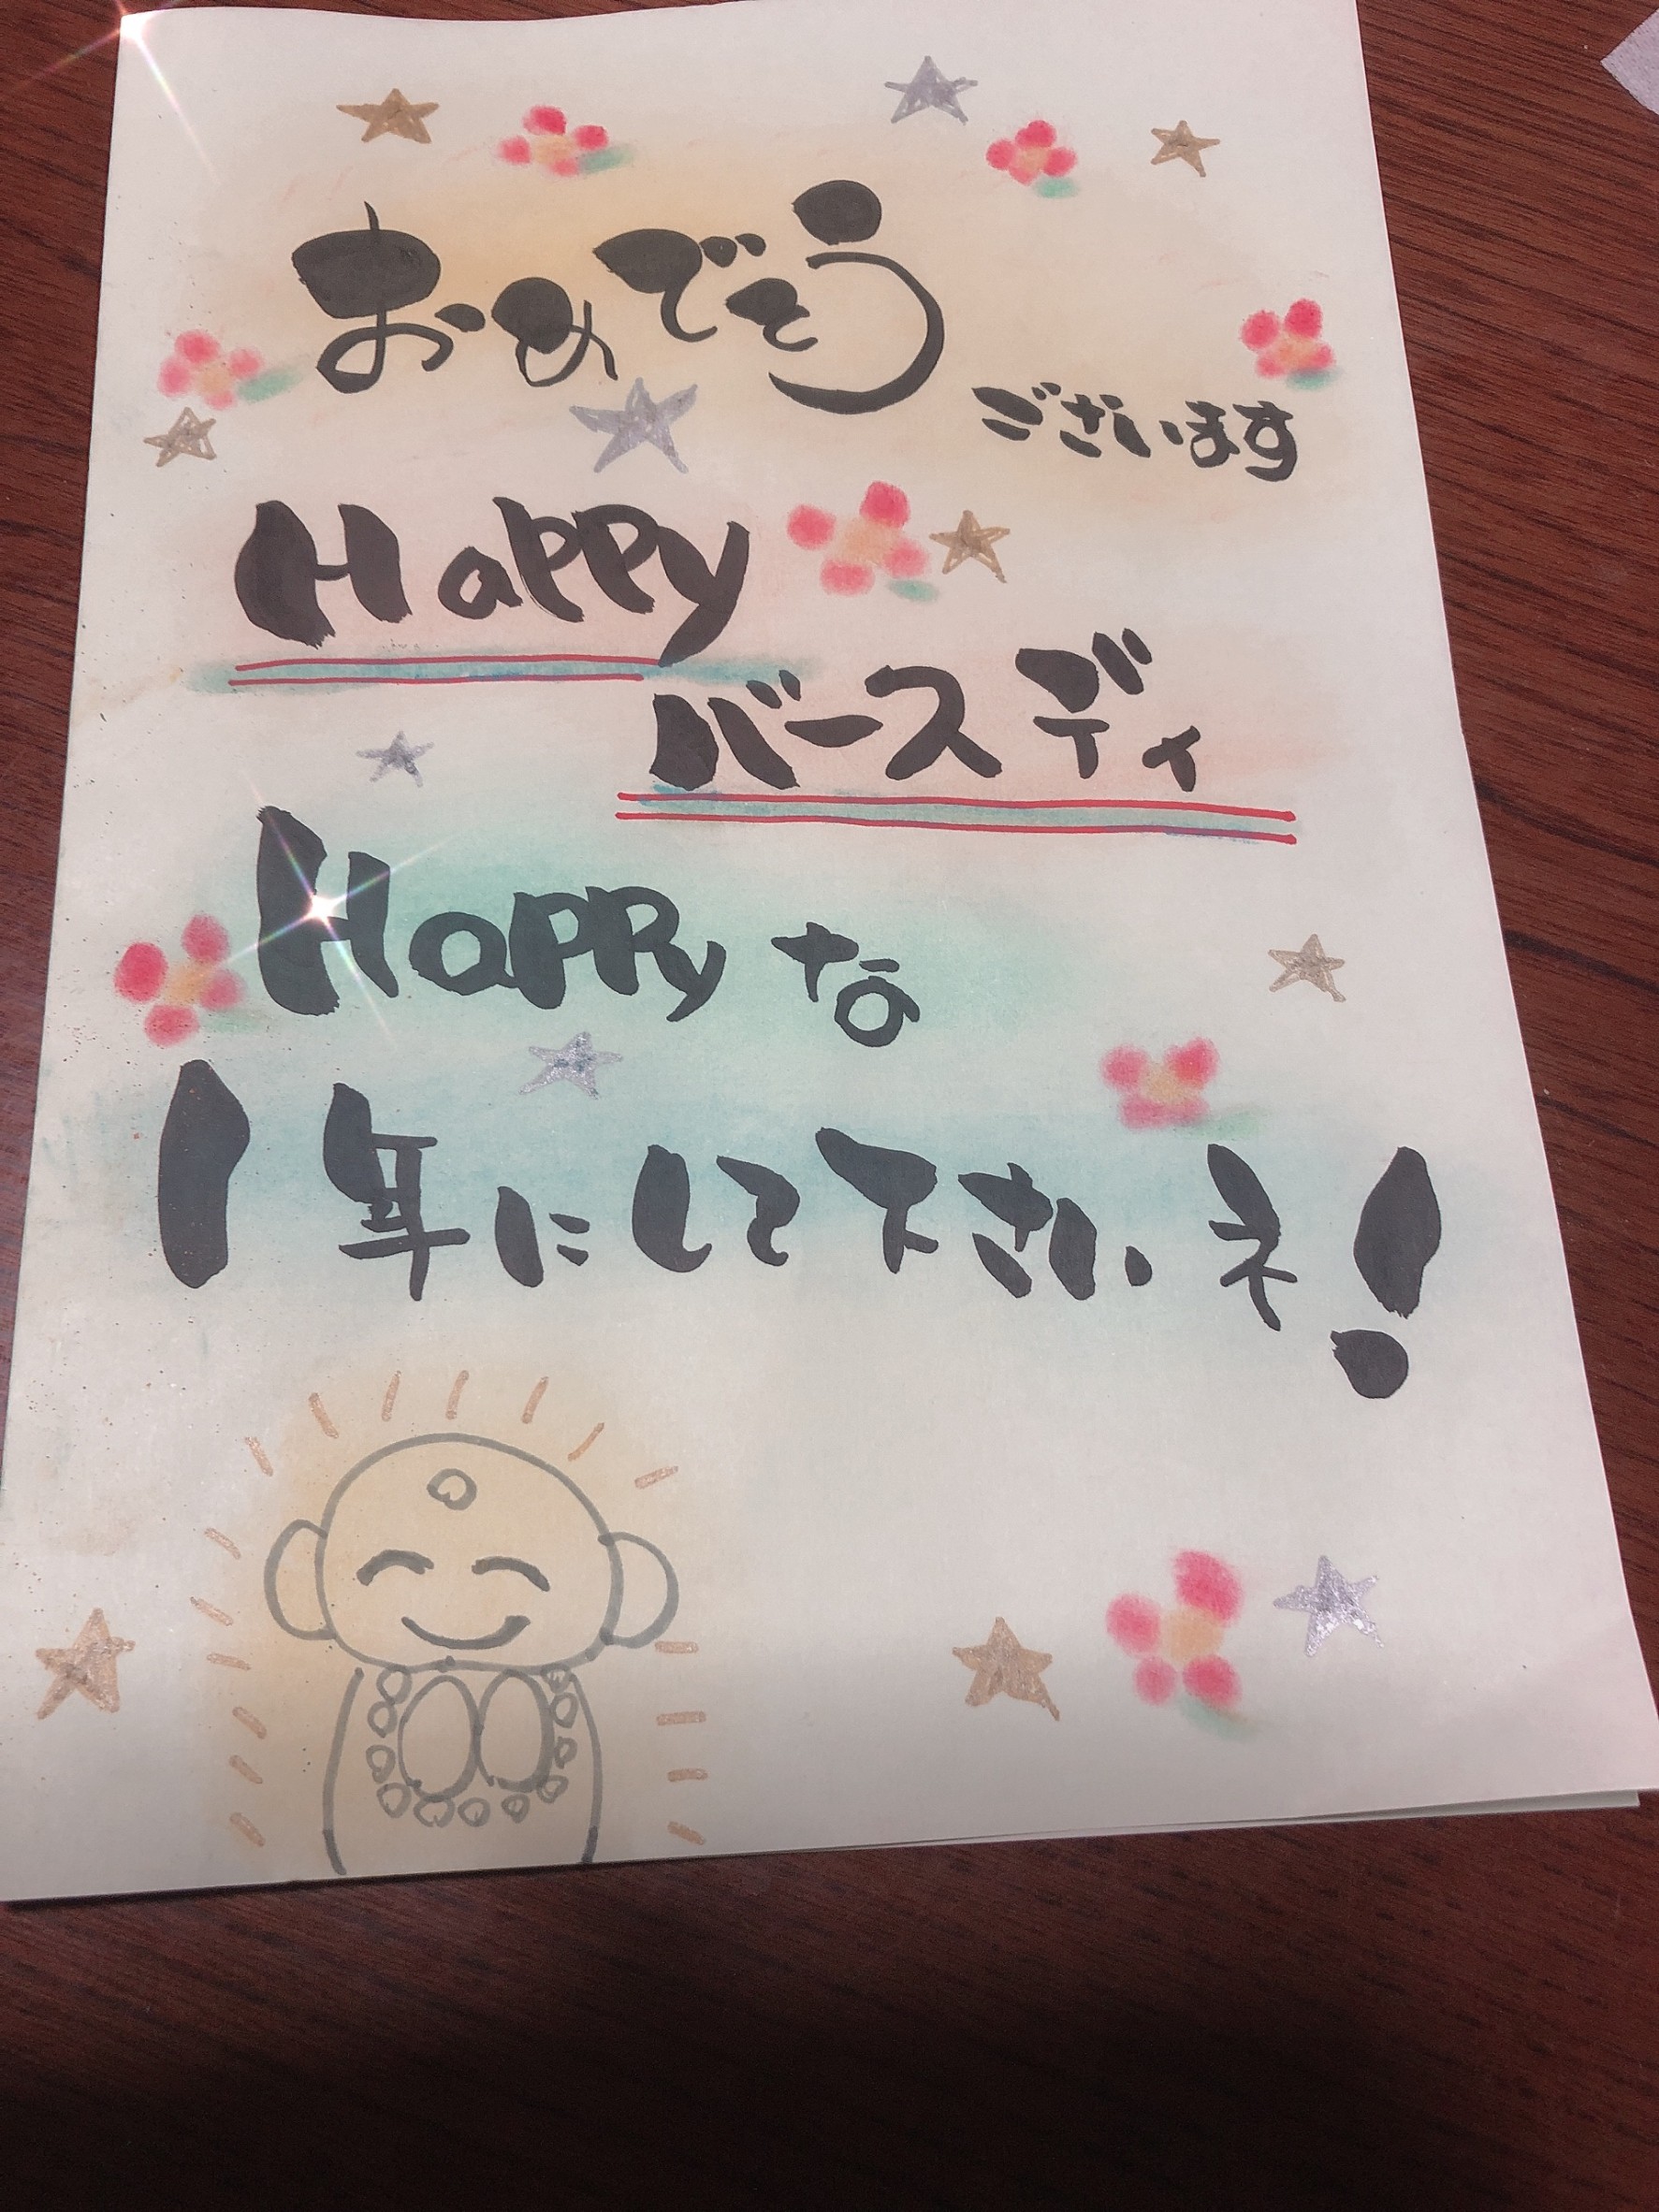 おめでとう
ございます
Happy
バースディ
Happyな
1年にして下さいネ!